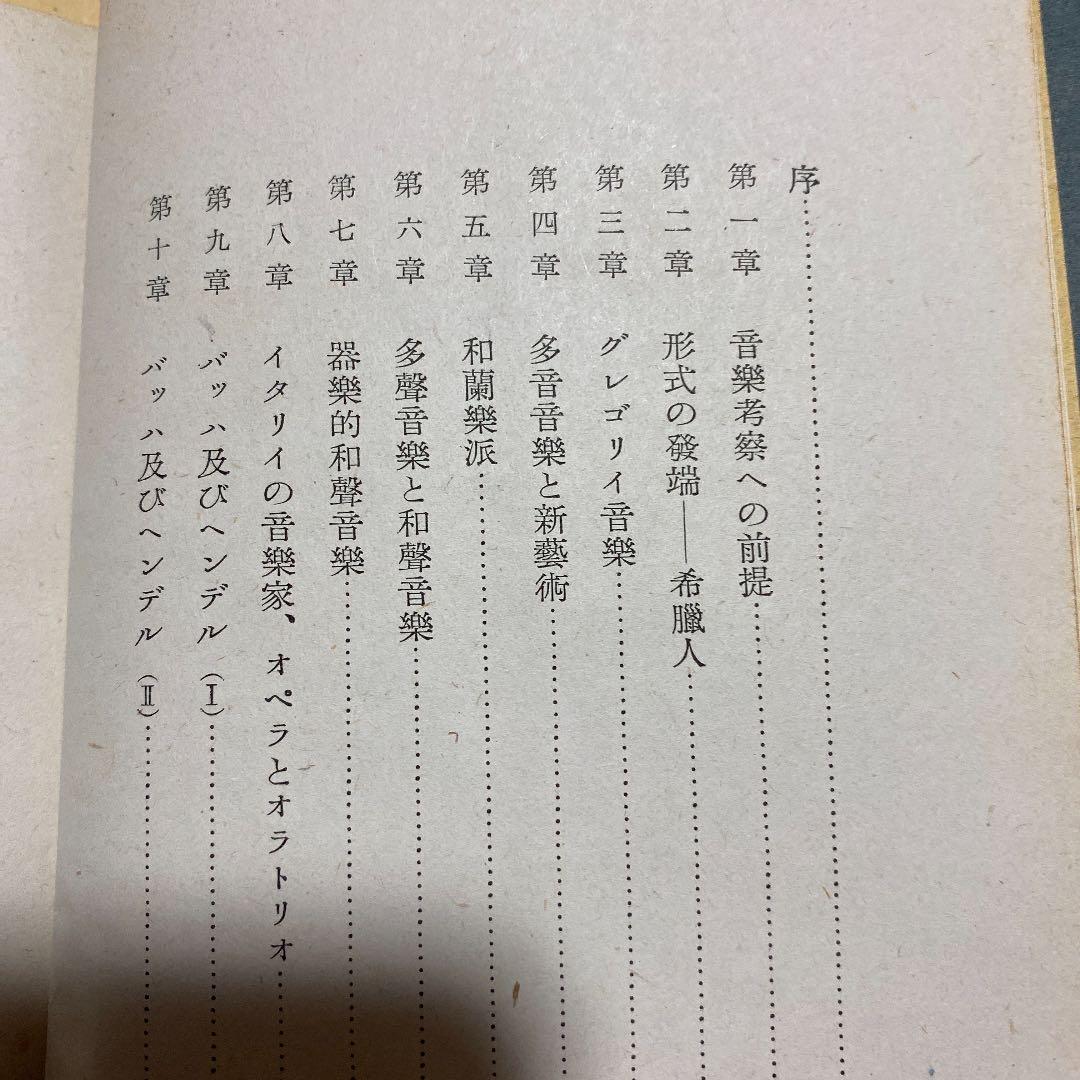 序
第一章 音樂考察への前提
第二章 形式の發端――希臘人
第三章 グレゴリイ音樂
第四章 多音音樂と新藝術
第五章 和蘭樂派
第六章 多聲音樂と和聲音樂
第七章 器樂的和聲音樂
第八章 イタリイの音樂家、オペラとオラトリオ
第九章 バッハ及びヘンデル（Ⅰ）
第十章 バッハ及びヘンデル（Ⅱ）